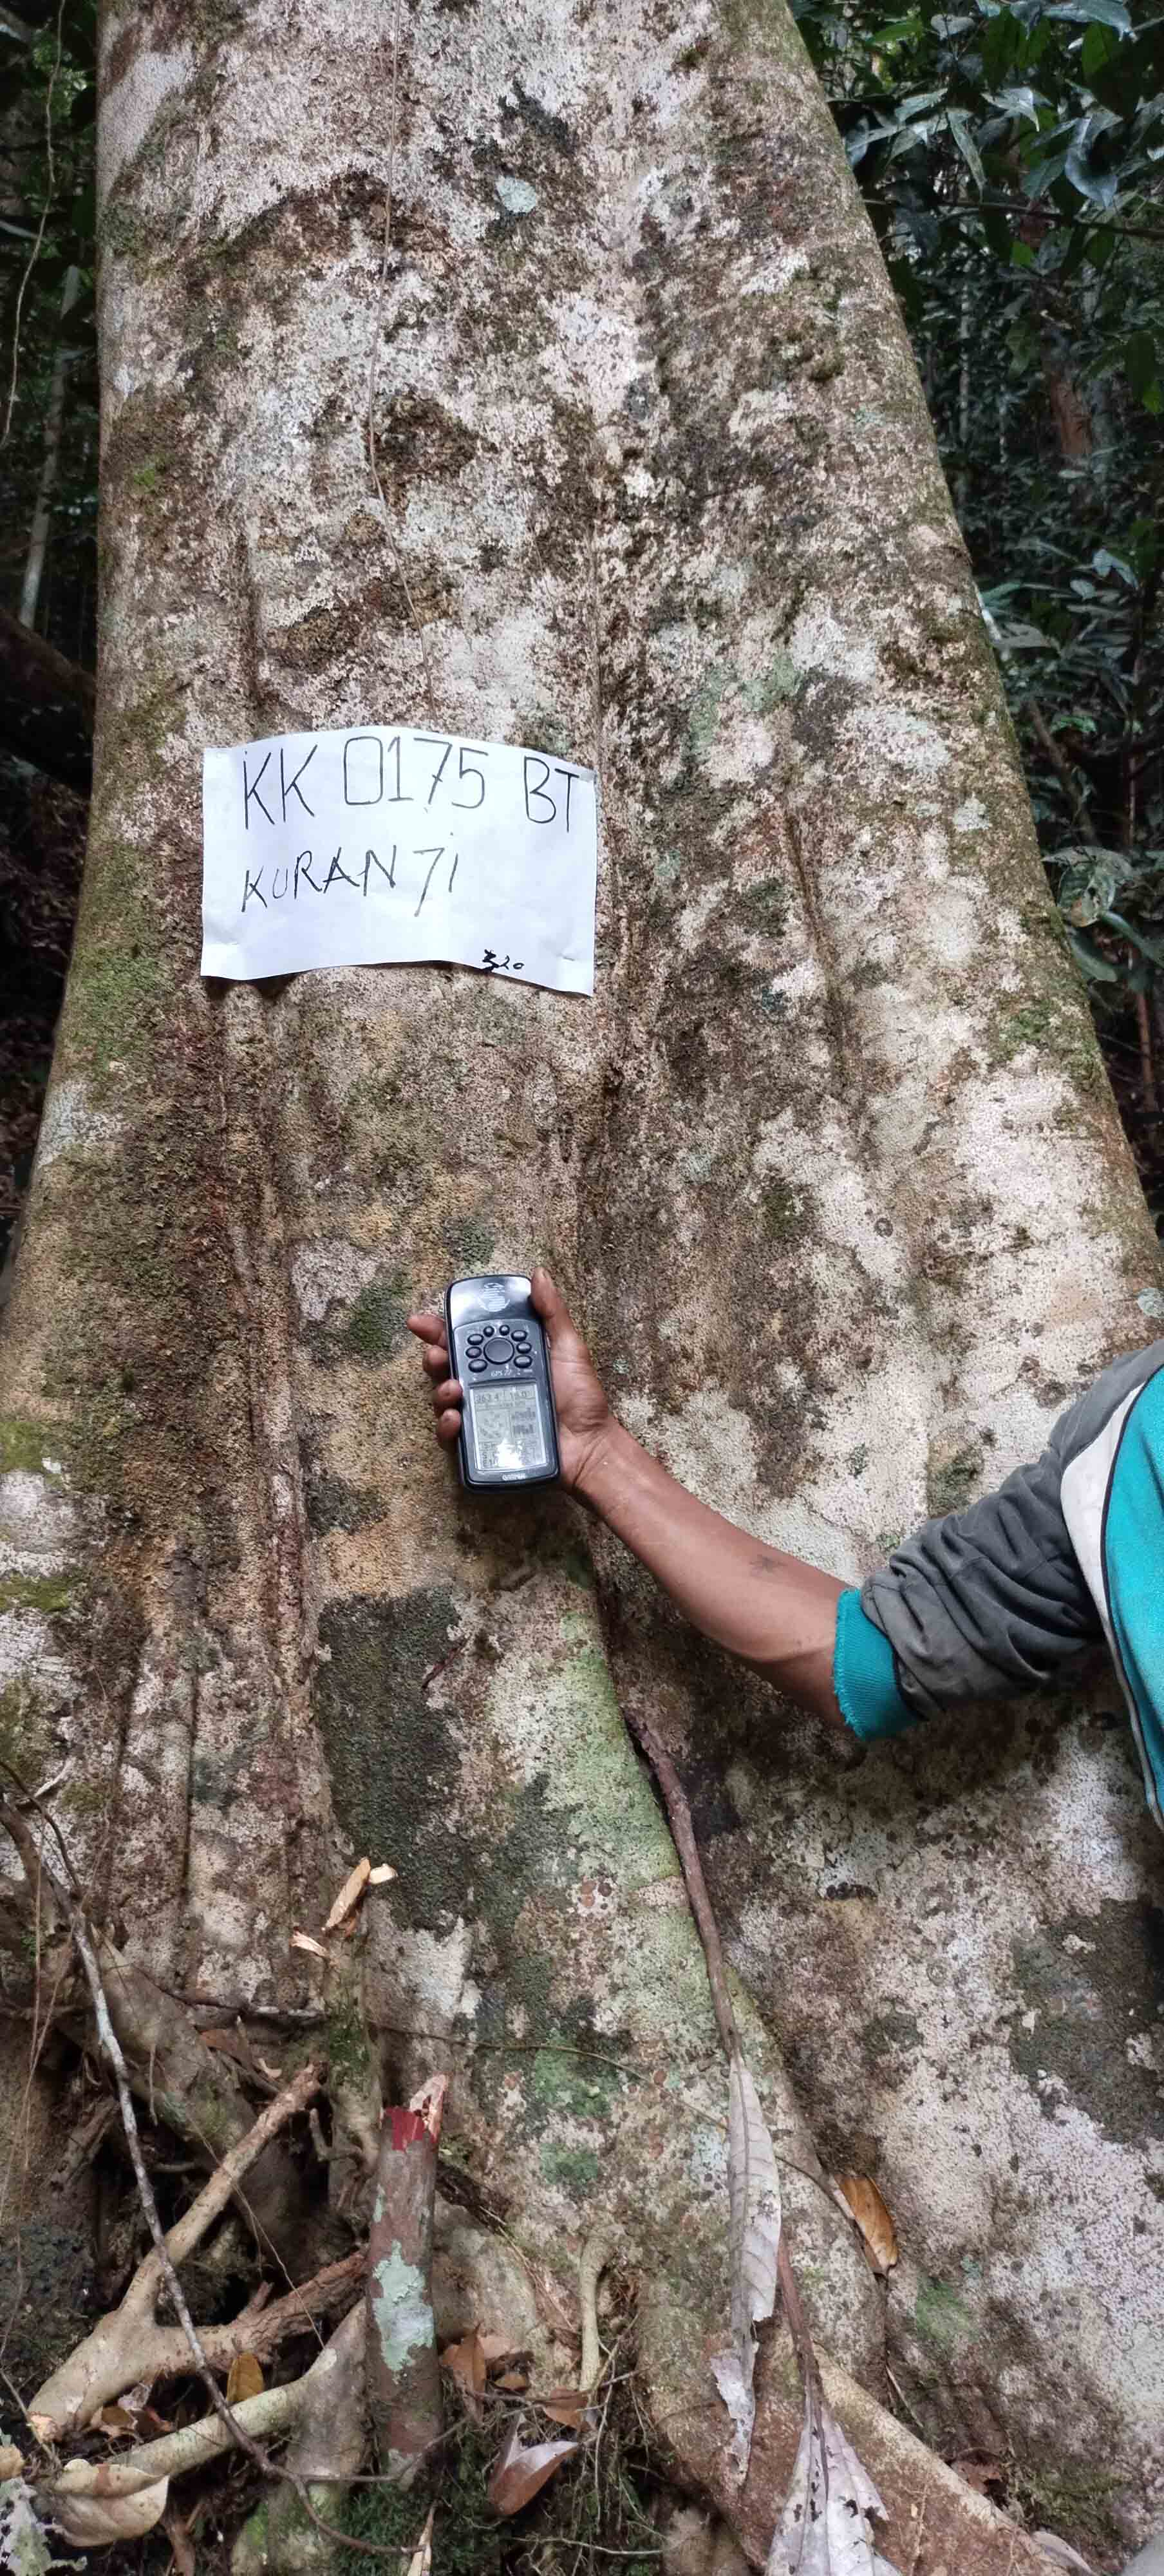 KK 0175 BT
KURAN 7i
320
GARMIN